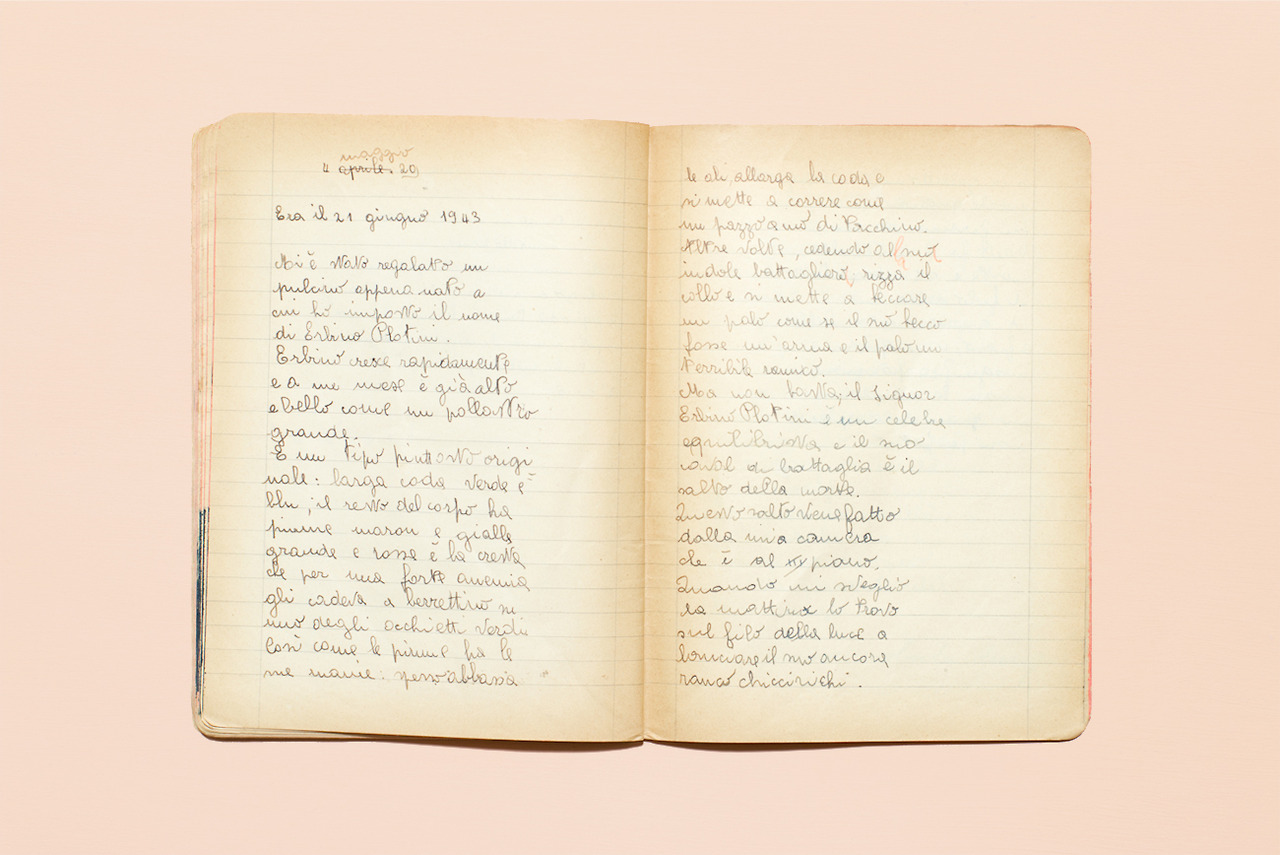 maggio
4 aprile. 29
Era il 21 giugno 1943
Mi è stato regalato un
pulcino appena nato a
cui ho imposto il nome
di Erbino Plotini.
Erbino cresce rapidamente
e a un mese è già alto
e bello come un pollastro
grande.
È un tipo piuttosto origi
nale: larga coda verde e
blu; il resto del corpo ha
piume maron e gialle
grande e rossa è la cresta
che per una forte anemia
gli cadeva a berrettino su
uno degli occhietti verdi
Così come le piume ha le
sue manie: spesso abbassa
le ali, allarga la coda e
si mette a correre come
un pazzo
Altre volte, cedendo al suo
indole battagliero, rizza il
collo e si mette a beccare
un palo come se il suo becco
fosse un'arma e il palo un
terribile nemico.
Ma non basta; il signor
Erbino Plotini è un celebre
equilibrista e il suo
caval di battaglia è il
salto della morte.
Questo salto viene fatto
dalla mia camera
che è al piano.
Quando mi sveglio
la mattina lo trovo
sul filo della luce a
lanciare il suo ancora
rauco chicciricchi.